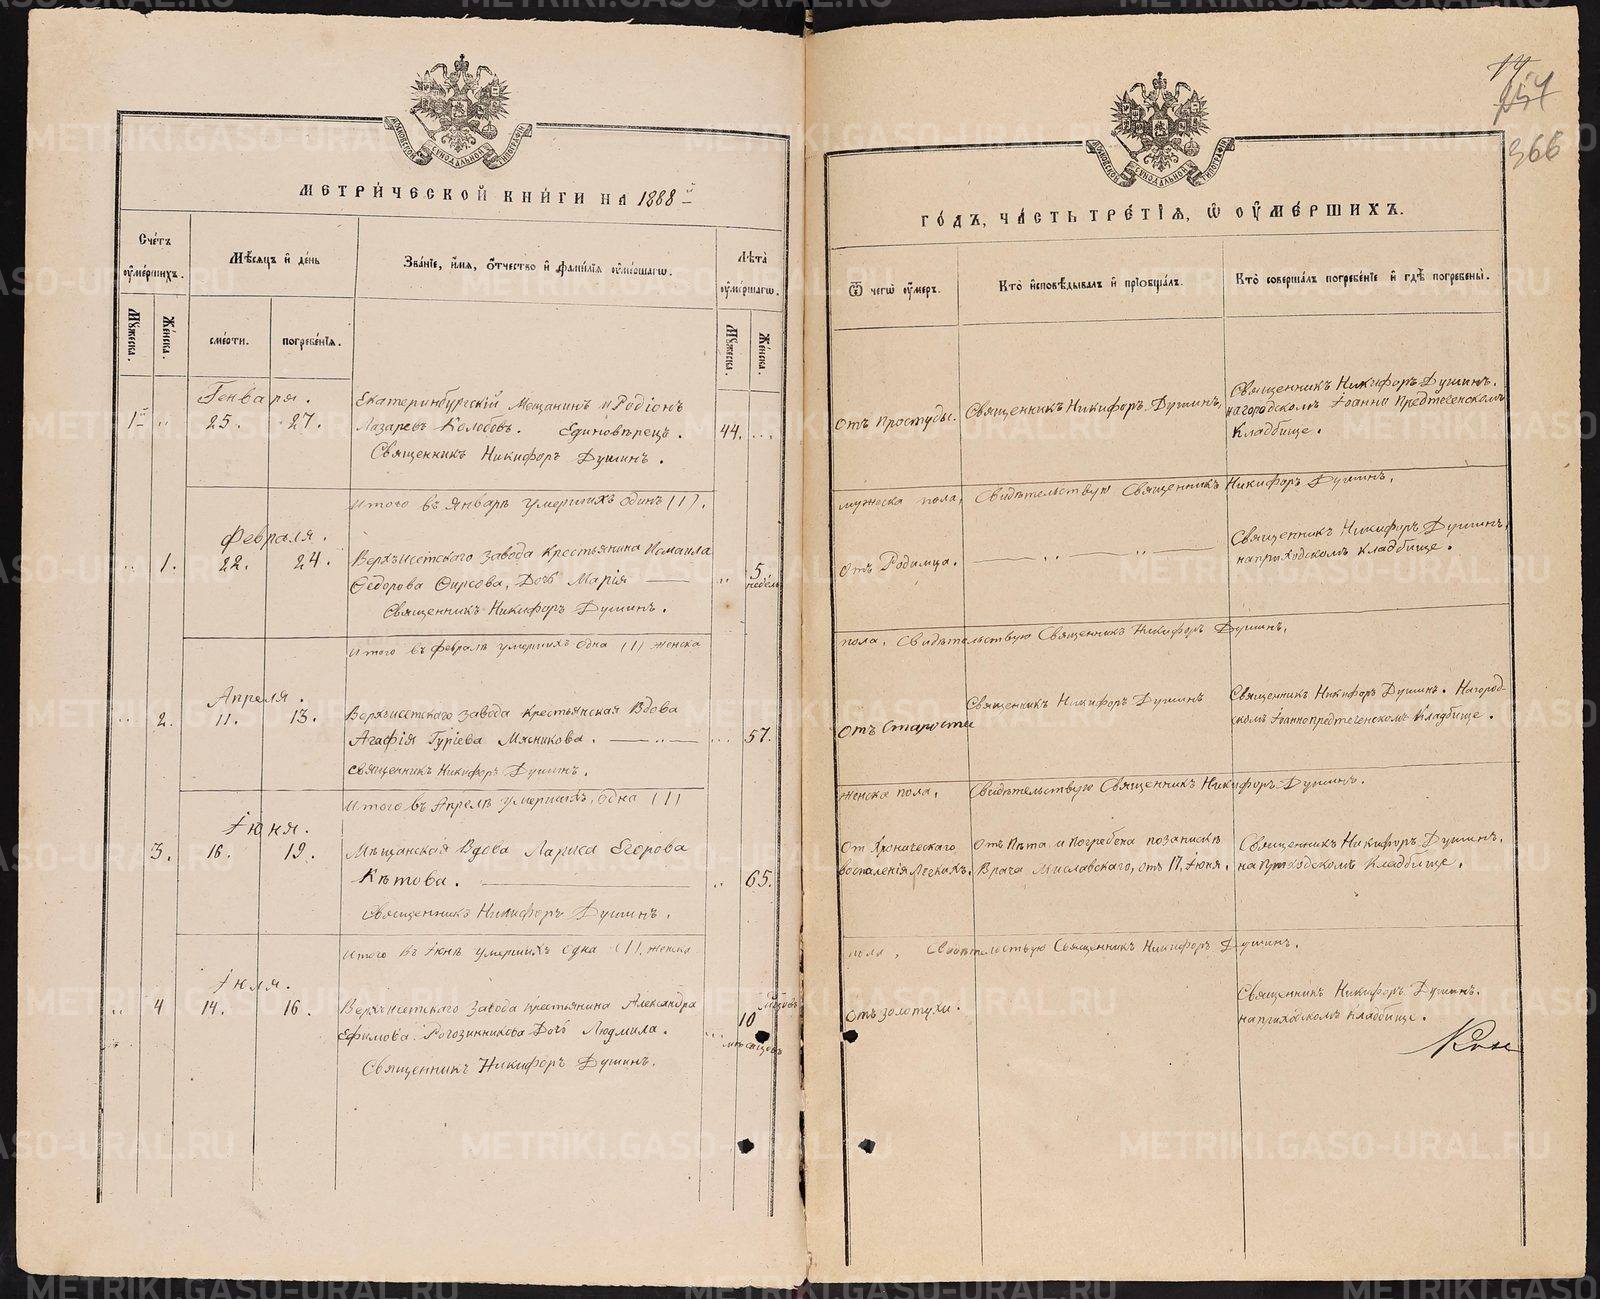 МЕТРИ́ЧЕСКОЙ КНИ́ГИ НА 1888й
Сче́тъ ѹ҆ме́ршихъ.
Мѣ́сяцъ и҆ де́нь
Зва́нїе, и҆́мя, ѻ҆́тчество и҆ фами́лїя ѹ҆ме́ршагѡ.
Лѣ́та ѹ҆ме́ршагѡ.
Мꙋ́жеска.
Же́нска.
сме́рти.
погребе́нїя.
Мꙋ́жеска.
Же́нска.
Генваря.
1й " 25. 27. Екатеринбургскій Мещанинъ Родіонъ
Лазаревъ Колобовъ. Единовѣрецъ. 44. ...
Священникъ Никифоръ Душинъ.
Итого въ Январѣ умершихъ одинъ (1).
Февраля.
" 1. 22. 24. Верхъисетскаго завода крестьянина Исмаила
Ѳедорова Фирсова, Дочь Марія — " 5 недѣль
Священникъ Никифоръ Душинъ.
Итого въ февралѣ умершихъ одна (1) женска
Апреля.
" 2. 11. 13. Верхъисетскаго завода крестьянская Вдова
Агафія Гуріева Мясникова. — " — ... 57.
священникъ Никифоръ Душинъ.
Итого въ Апрелѣ умершихъ, одна (1)
Іюня.
3. 16. 19. Мѣщанская Вдова Лариса Егорова
Кѣтова. — " 65.
Священникъ Никифоръ Душинъ.
Итого въ Іюнѣ умершихъ одна (1). женска
Іюля.
" 4 14. 16. Верхъисетскаго Завода крестьянина Александра
Ефимова Рогозинникова Дочь Людмила. ... 10 мѣсяцовъ
Священникъ Никифоръ Душинъ.
14
257
366
ГО́ДЪ, ЧА́СТЬ ТРЕ́ТЇЯ, Ѡ҆ ОУ҆МЕ́РШИХЪ.
Ѿ чегѡ̀ ѹ҆́меръ.
Кто̀ и҆сповѣ́дывалъ и҆ прїѡбща́лъ.
Кто̀ соверша́лъ погребе́нїе и҆ гдѣ̀ погребены̀.
Отъ простуды.
Священникъ Никифоръ Душинъ,
Священникъ Никифоръ Душинъ.
на городскомъ Іоанно Предтеченскомъ
Кладбище.
мужеска пола, Свидѣтельствую Священникъ Никифоръ Душинъ,
Отъ Родимца.
— " " —
Священникъ Никифоръ Душинъ,
на приходскомъ кладбище.
пола, Свидѣтельствую Священникъ Никифоръ Душинъ,
Отъ Старости
Священникъ Никифоръ Душинъ
Священникъ Никифоръ Душинъ. На город-
скомъ Іоаннопредтеченскомъ Кладбище.
женска пола, Свидѣтельствую Священникъ Никифоръ Душинъ.
От Хроническаго
воспаленія Легкихъ.
Отъ Пѣта и Погребена по запискѣ
Врача Миславскаго, отъ 17. Іюня.
Священникъ Никифоръ Душинъ,
на Приходскомъ Кладбище.
пола, Свидѣтельствую Священникъ Никифоръ Душинъ.
Отъ золотухи.
Священникъ Никифоръ Душинъ.
на приходскомъ кладбище.